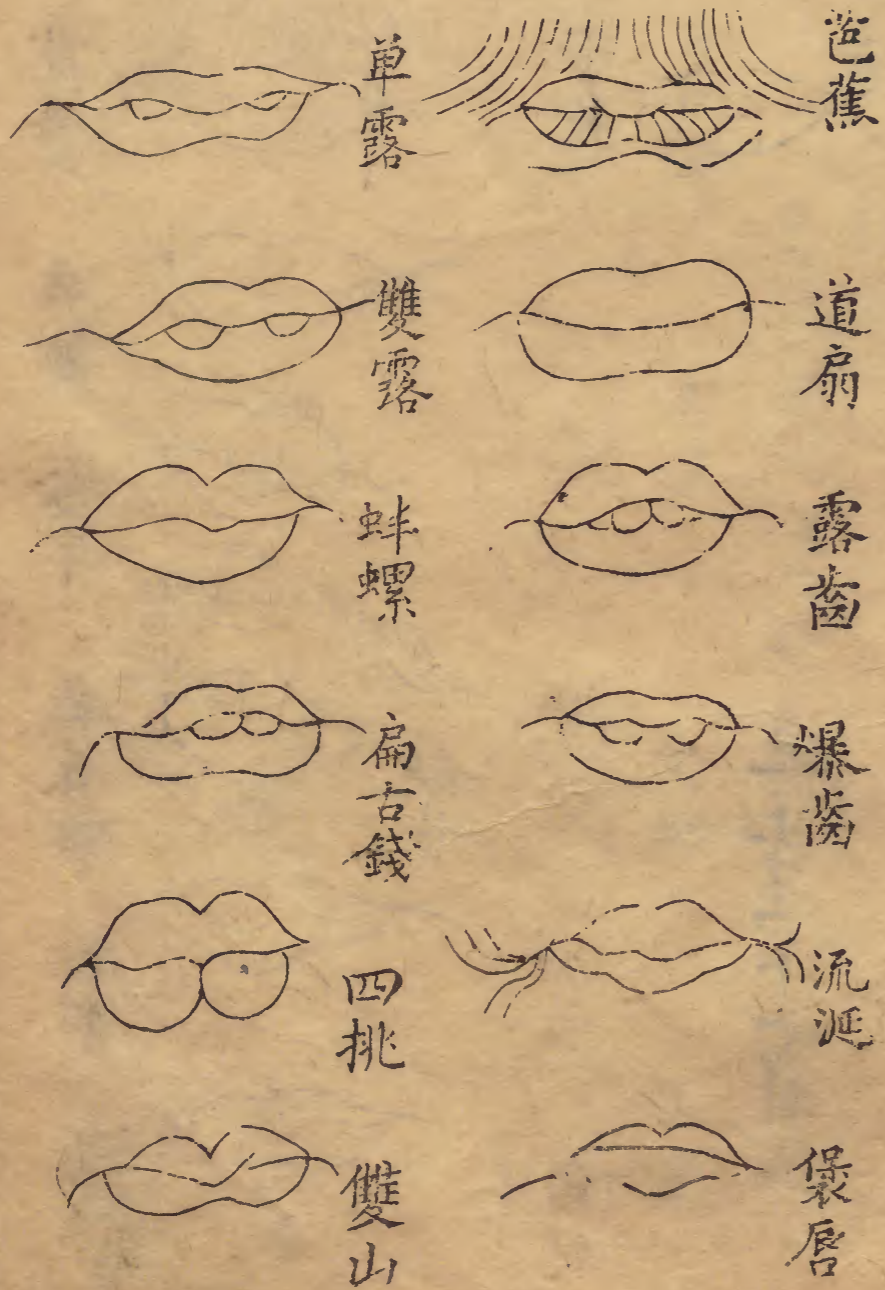 芭蕉
道扇
露齒
爆齒
流涎
褒唇
单露
雙露
蚌螺
扁古錢
四挑
雙山